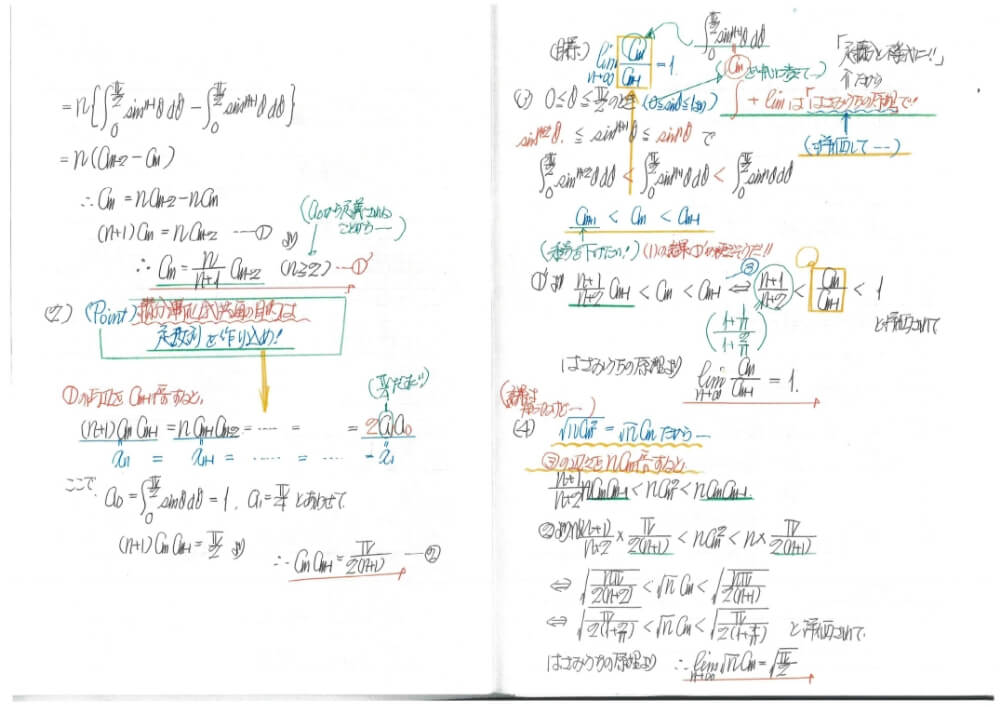 = n{∫₀^{π/2} sin^{n+1}θ dθ − ∫₀^{π/2} sin^{n+1}θ dθ}
= n(a_{n+2} − a_n)
∴ a_n = n a_{n+2} − n a_n
(n+1)a_n = n a_{n+2} ―① より
∴ a_n = n/(n+1) a_{n+2} (n≧2) ―①'
(2) (Point)
定数列を作り込め!
①の両辺をa_{n+1}倍すると,
(n+1)a_n a_{n+1} = n a_{n+1} a_{n+2} = …… = …… = 2a_1 a_0
x_n = x_{n+1} = …… = …… = x_1
ここで,
a_0 = ∫₀^{π/2} sinθ dθ = 1, a_1 = π/4 とあわせて
(n+1)a_n a_{n+1} = π/2 より
∴ a_n a_{n+1} = π/(2(n+1)) ―②
(目標:) lim_{n→∞} a_n/a_{n+1} = 1.
∫₀^{π/2} sin^{n+1}θ dθ
(3) 0≦θ≦π/2 のとき (0≦sinθ≦1より)
∫ + lim は「はさみうちの原理」で!
(で評価して…)
sin^{n+2}θ ≦ sin^{n+1}θ ≦ sin^nθ で
∫₀^{π/2} sin^{n+2}θ dθ < ∫₀^{π/2} sin^{n+1}θ dθ < ∫₀^{π/2} sin^nθ dθ
a_{n+1} < a_n < a_{n-1}
(番号を下げたい!) (1)の結果①'が使えそうだ!!
①'より (n+1)/(n+2) a_{n-1} < a_n < a_{n-1} ―③ ⇔ (n+1)/(n+2) < a_n/a_{n-1} < 1
(1+1/n)/(1+2/n)
と評価されて
はさみうちの原理より lim_{n→∞} a_n/a_{n-1} = 1.
(4) √(n a_n²) = √n a_n だから…
③の辺々をn a_n倍すると,
(n+1)/(n+2) n a_n a_{n-1} < n a_n² < n a_n a_{n-1}
②より n(n+1)/(n+2) × π/(2(n+1)) < n a_n² < n × π/(2(n+1))
⇔ √(nπ/(2(n+2))) < √n a_n < √(nπ/(2(n+1)))
⇔ √(π/(2(1+2/n))) < √n a_n < √(π/(2(1+1/n))) と評価されて,
はさみうちの原理より ∴ lim_{n→∞} √n a_n = √(π/2)